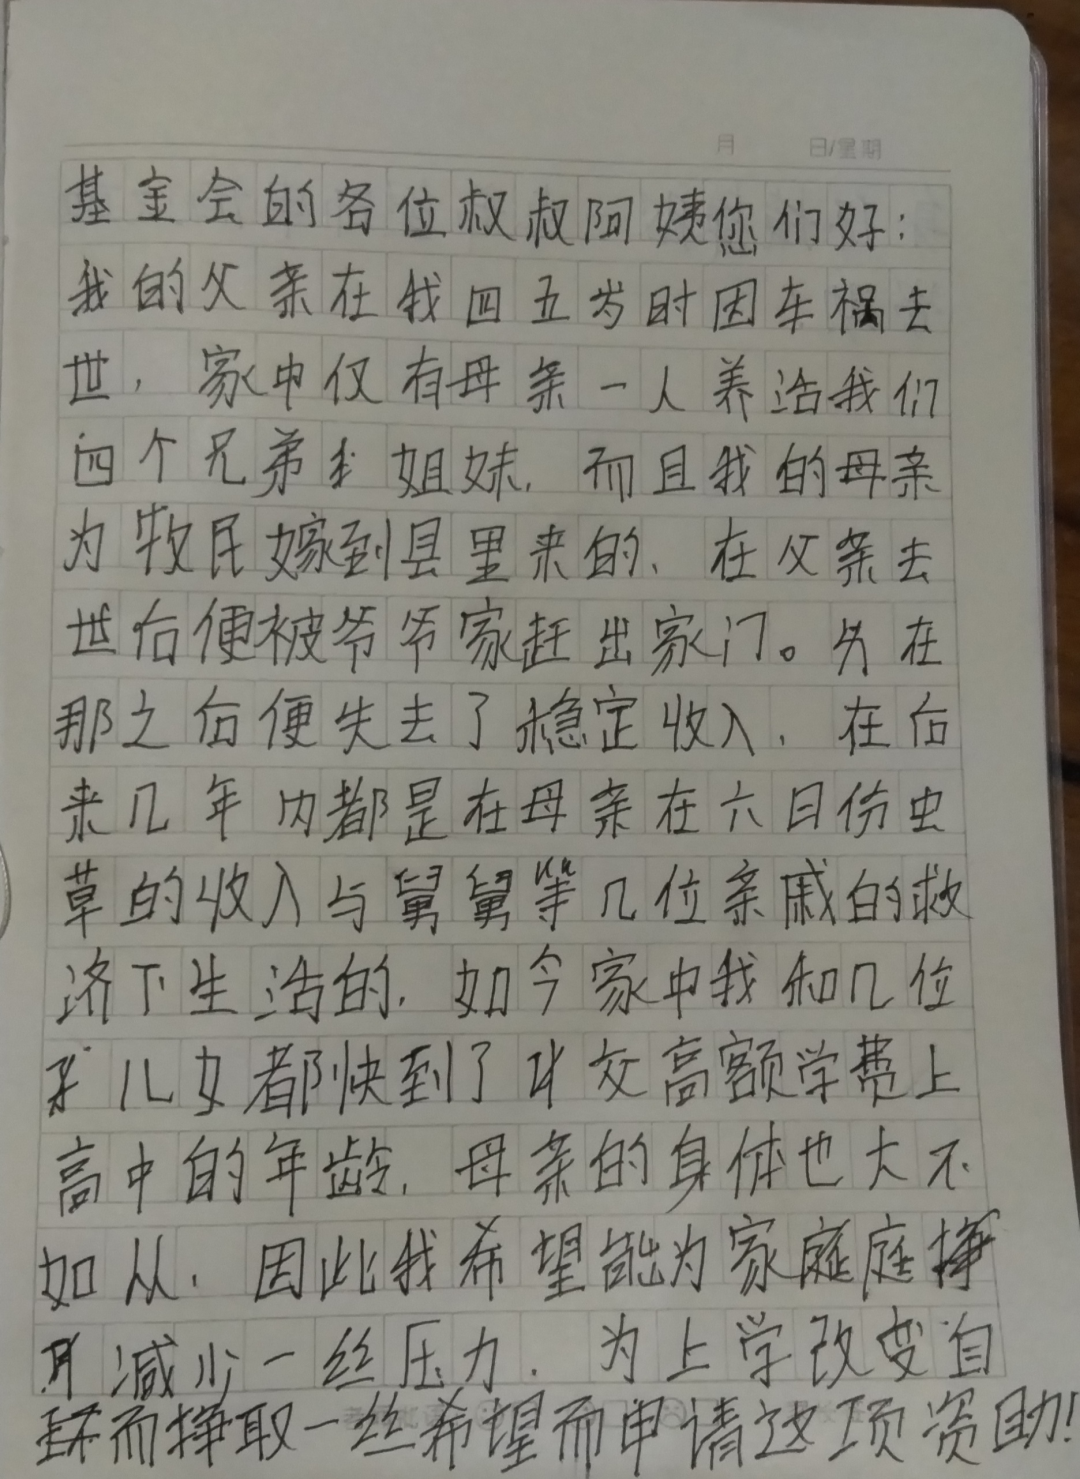 月 日/星期
基金会的各位叔叔阿姨您们好：
我的父亲在我四五岁时因车祸去
世，家中仅有母亲一人养活我们
四个兄弟姐妹，而且我的母亲
为牧民嫁到县里来的、在父亲去
世后便被爷爷家赶出家门。在
那之后便失去了稳定收入，在后
来几年内都是在母亲在六日份虫
草的收入与舅舅等几位亲戚的救
济下生活的，如今家中我和几位
儿女都快到了交高额学费上
高中的年龄，母亲的身体也大不
如从，因此我希望能为家庭庭
减少一丝压力，为上学改变自
而挣取一丝希望而申请这项资助！